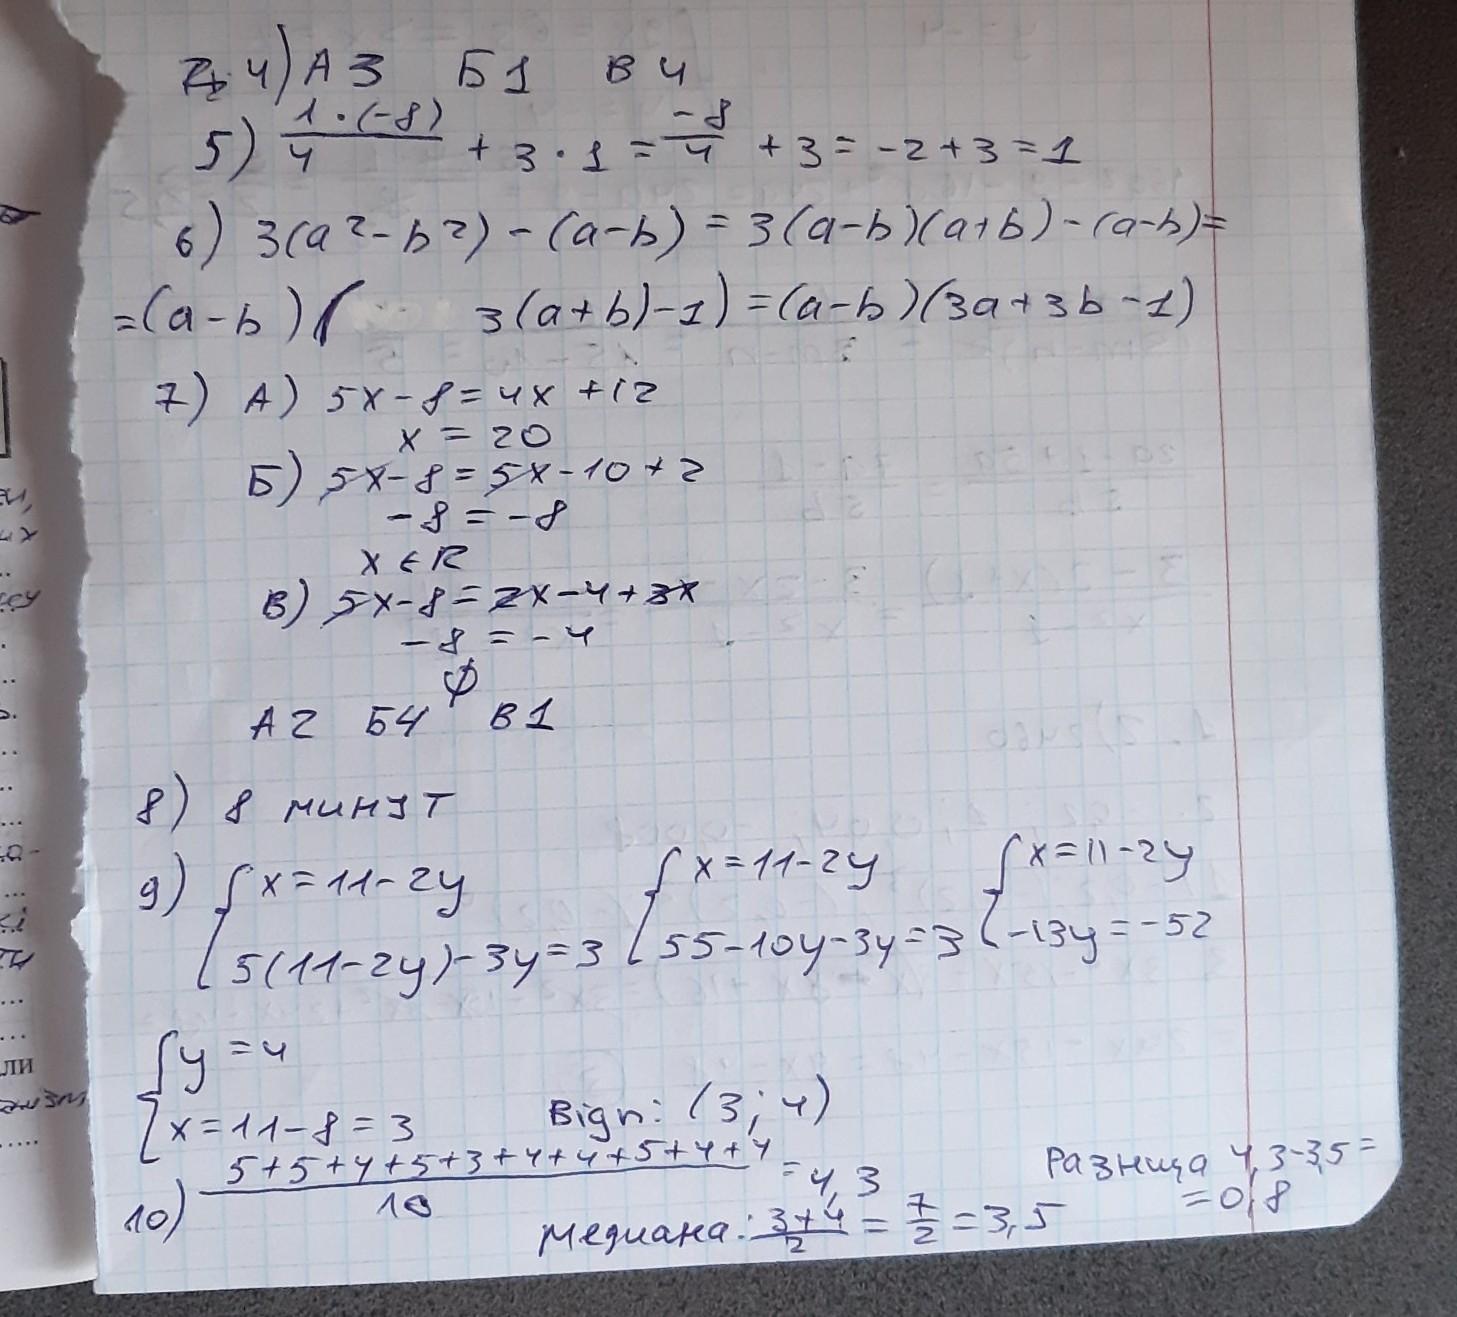 4) А 3 Б 1 В 4
5) 1·(-8)/4 + 3·1 = -8/4 + 3 = -2+3=1
6) 3(a²-b²)-(a-b) = 3(a-b)(a+b)-(a-b)=
=(a-b)(3(a+b)-1)=(a-b)(3a+3b-1)
7) А) 5x-8=4x+12
x = 20
Б) 5x-8=5x-10+2
-8=-8
x∈R
В) 5x-8=2x-4+3x
-8=-4
∅
А2 Б4 В1
8) 8 минут
9) { x=11-2y { x=11-2y { x=11-2y
5(11-2y)-3y=3 55-10y-3y=3 -13y=-52
{ y=4
x=11-8=3 Bigп: (3; 4)
10) 5+5+4+5+3+4+4+5+4+4/10 = 4,3 Разница 4,3-3,5=
=0,8
медиана: 3+4/2 = 7/2 = 3,5
ли